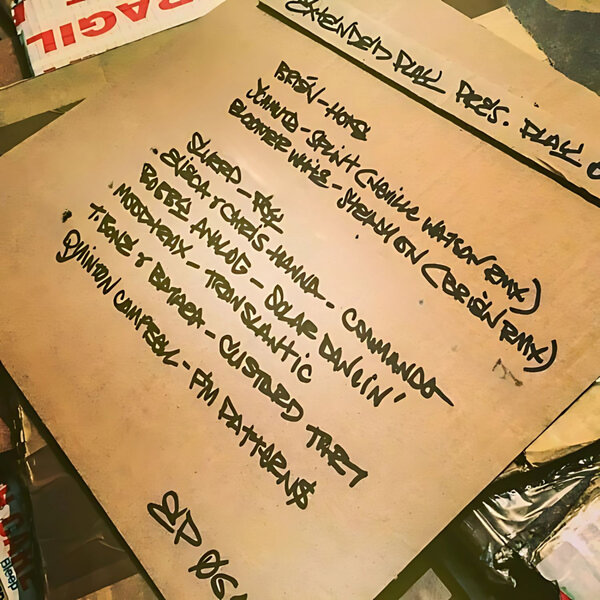 FRAGIL
EXTENDED PLAY PRES. PLAY
BRIEN - HOME
SCHMID - SPLINT (NEVILLE WATSON RMX)
BLOOMER WHITE - STEADY ON (BRIEN RMX)
SLEED -
& CHRIS HANNA - COMMANDO
ANALOG - SOLAR DANCIN'
MOODYMAX - TRANSLANTIC
T. BONE & - CUSTARD TART
QUINTON CAMPBELL - FM PATTERNS
EP 06
Bleep